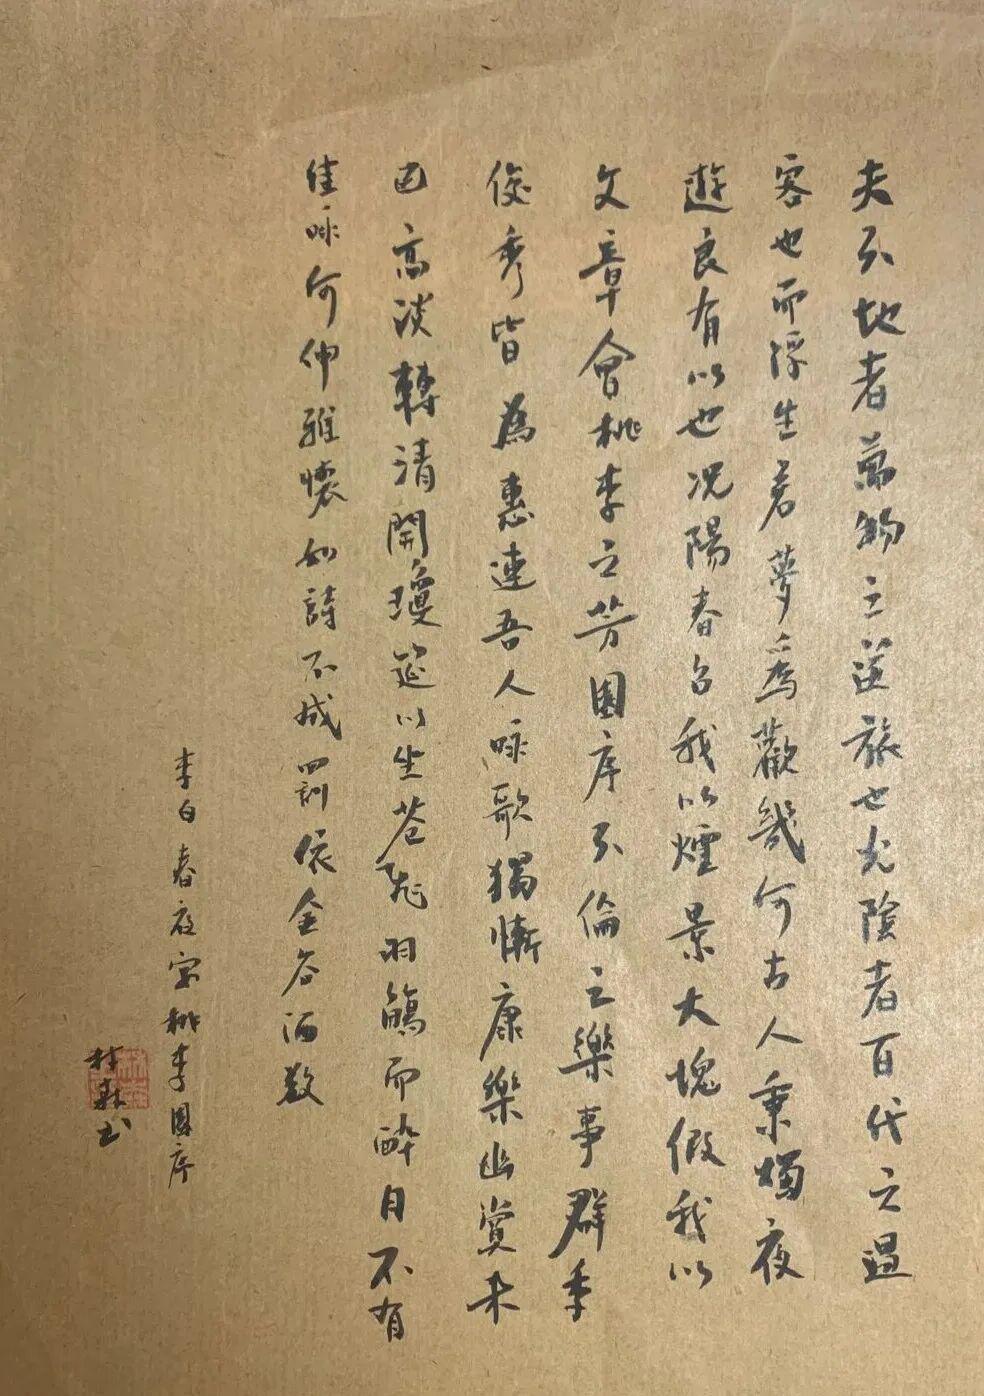 夫天地者萬物之逆旅也光陰者百代之過
客也而浮生若夢爲歡幾何古人秉燭夜
遊良有以也況陽春召我以煙景大塊假我以
文章會桃李之芳園序天倫之樂事群季
俊秀皆為惠連吾人咏歌獨慚康樂幽賞未
已高淡轉清開瓊筵以坐花飛羽觴而醉月不有
佳咏何伸雅懷如詩不成罰依金谷酒數
李白春夜宴桃李園序
林森书